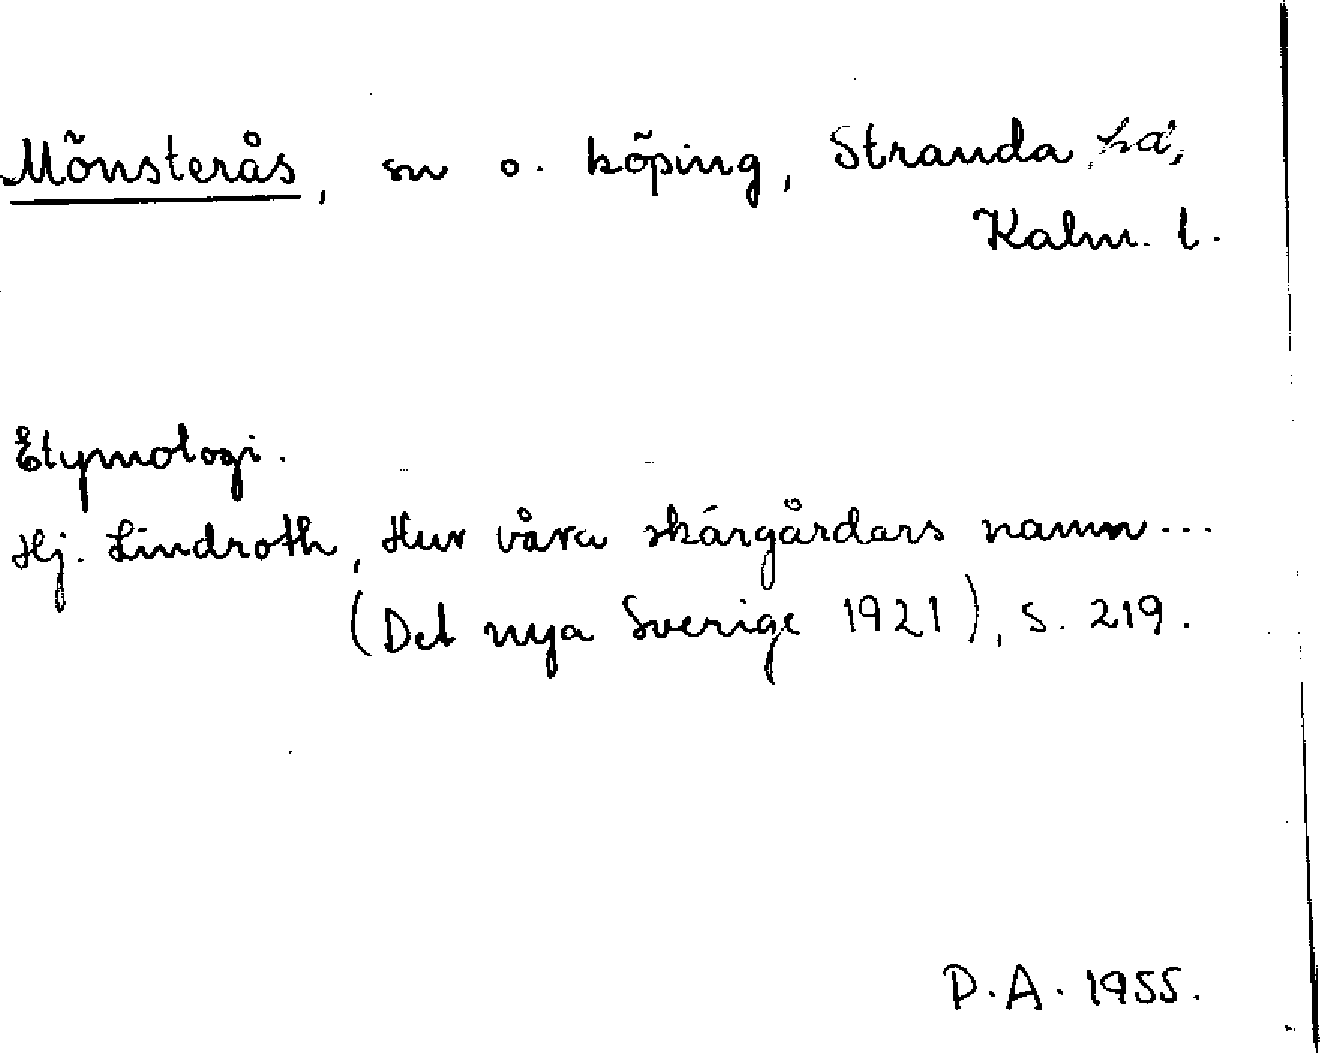 Mönsterås, sn o. köping, Stranda hd,
Kalm. l.
Etymologi.
Hj. Lindroth, Hur våra skärgårdars namn...
(Det nya Sverige 1921), s. 219.
D.A. 1955.